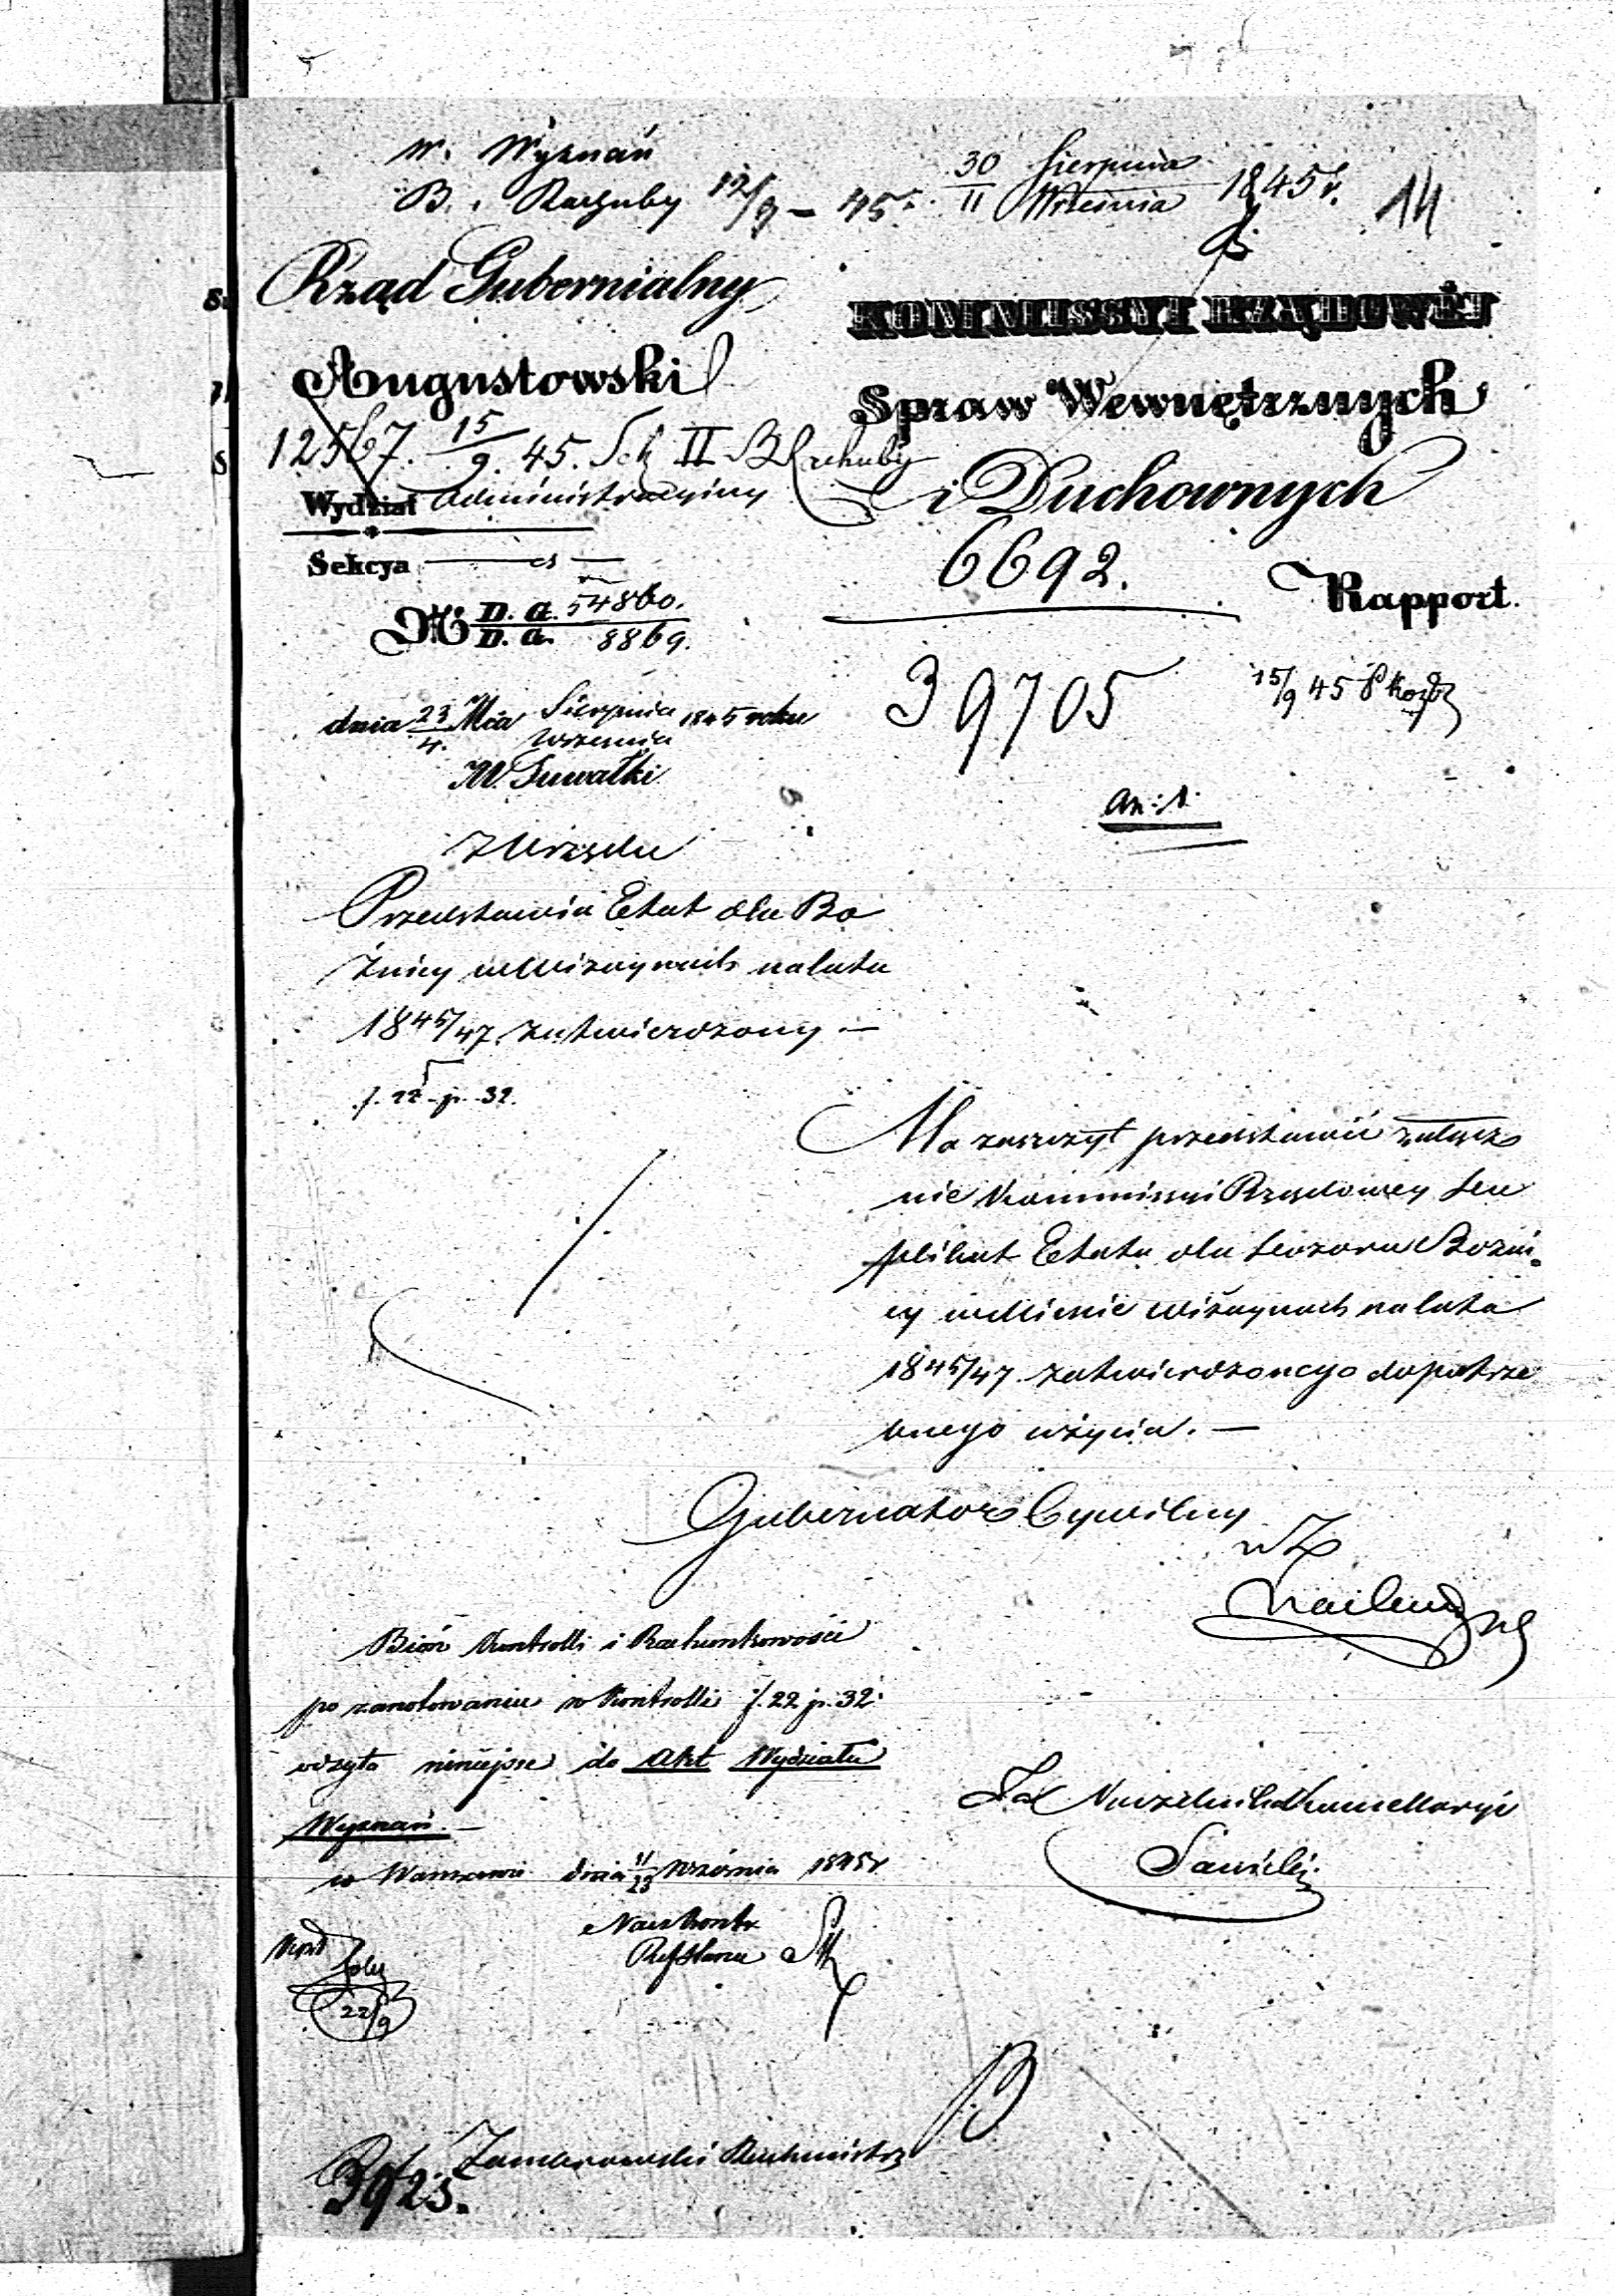 W. Wyznań
B. Rachuby 12/9 – 45 r.
30 Sierpnia
11 Września 1845 r.
14
Rząd Gubernialny
Augustowski
12567. 15/9. 45. Sek II B Rachuby
Wydział Administracyjny
Sekcya
№ D. G. 54860.
D. G. 8869.
dnia 23/4. Mca Sierpnia
Września 1845 roku
W. Suwałki
KOMMISSYI RZĄDOWÉJ
Spraw Wewnętrznych
i Duchownych
6692.
Rapport.
39705
15/9 45
An: 1.
Z Urzędu
Przedstawia Etat dla Bo
żnicy w Wiżaynach na lata
1845/47 zatwierdzony —
f. 22 p. 32.
Ma zaszczyt przedstawić załącz
nie Kommissyi Rządowey Du
plikat Etatu dla Dozoru Bożni
cy w Mieście Wiżaynach na lata
1845/47 zatwierdzonego do potrze
bnego użycia. —
Gubernator Cywilny
w Z
Biór Kontrolli i Rachunkowości
po zanotowaniu w Kontrolli f. 22 p. 32
odsyła niniejsze do Akt Wydziału
Wyznań. —
w Warszawie dnia 11/23 Września 1845 r.
Nacz Kontr
Za Naczelnika Kancellaryi
22/9
Rachmistrz
3925.